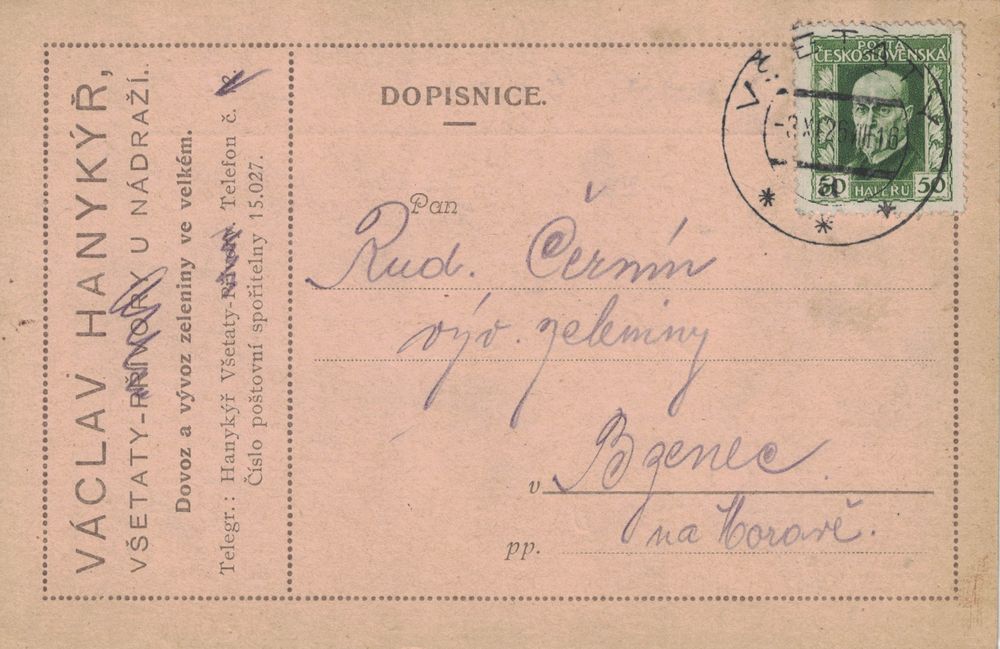 VÁCLAV HANYKÝŘ,
VŠETATY-PŘÍVORY U NÁDRAŽÍ.
Dovoz a vývoz zeleniny ve velkém.
Telegr.: Hanykýř Všetaty-Přívory. Telefon č.
Číslo poštovní spořitelny 15.027.
DOPISNICE.
VŠETATY
POŠTA
ČESKOSLOVENSKÁ
50 HALÉŘŮ 50
Pan
Rud. Černín
výv. zeleniny
v Bzenec
na Moravě.
pp.